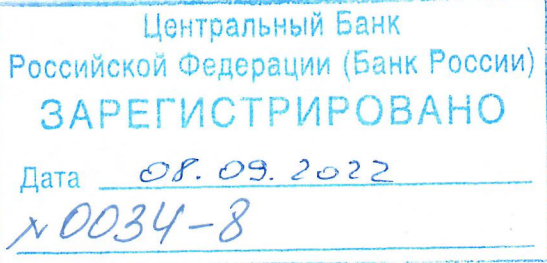 Центральный Банк
Российской Федерации (Банк России)
ЗАРЕГИСТРИРОВАНО
Дата 08.09.2022
№ 0034-8